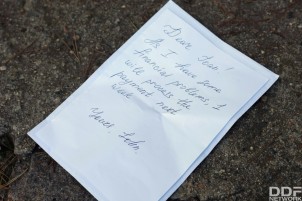 Dear, Tom!
As I have some
financial problems, I
will provide the
payment next
week.
Yours John,
DDF
NETWORK